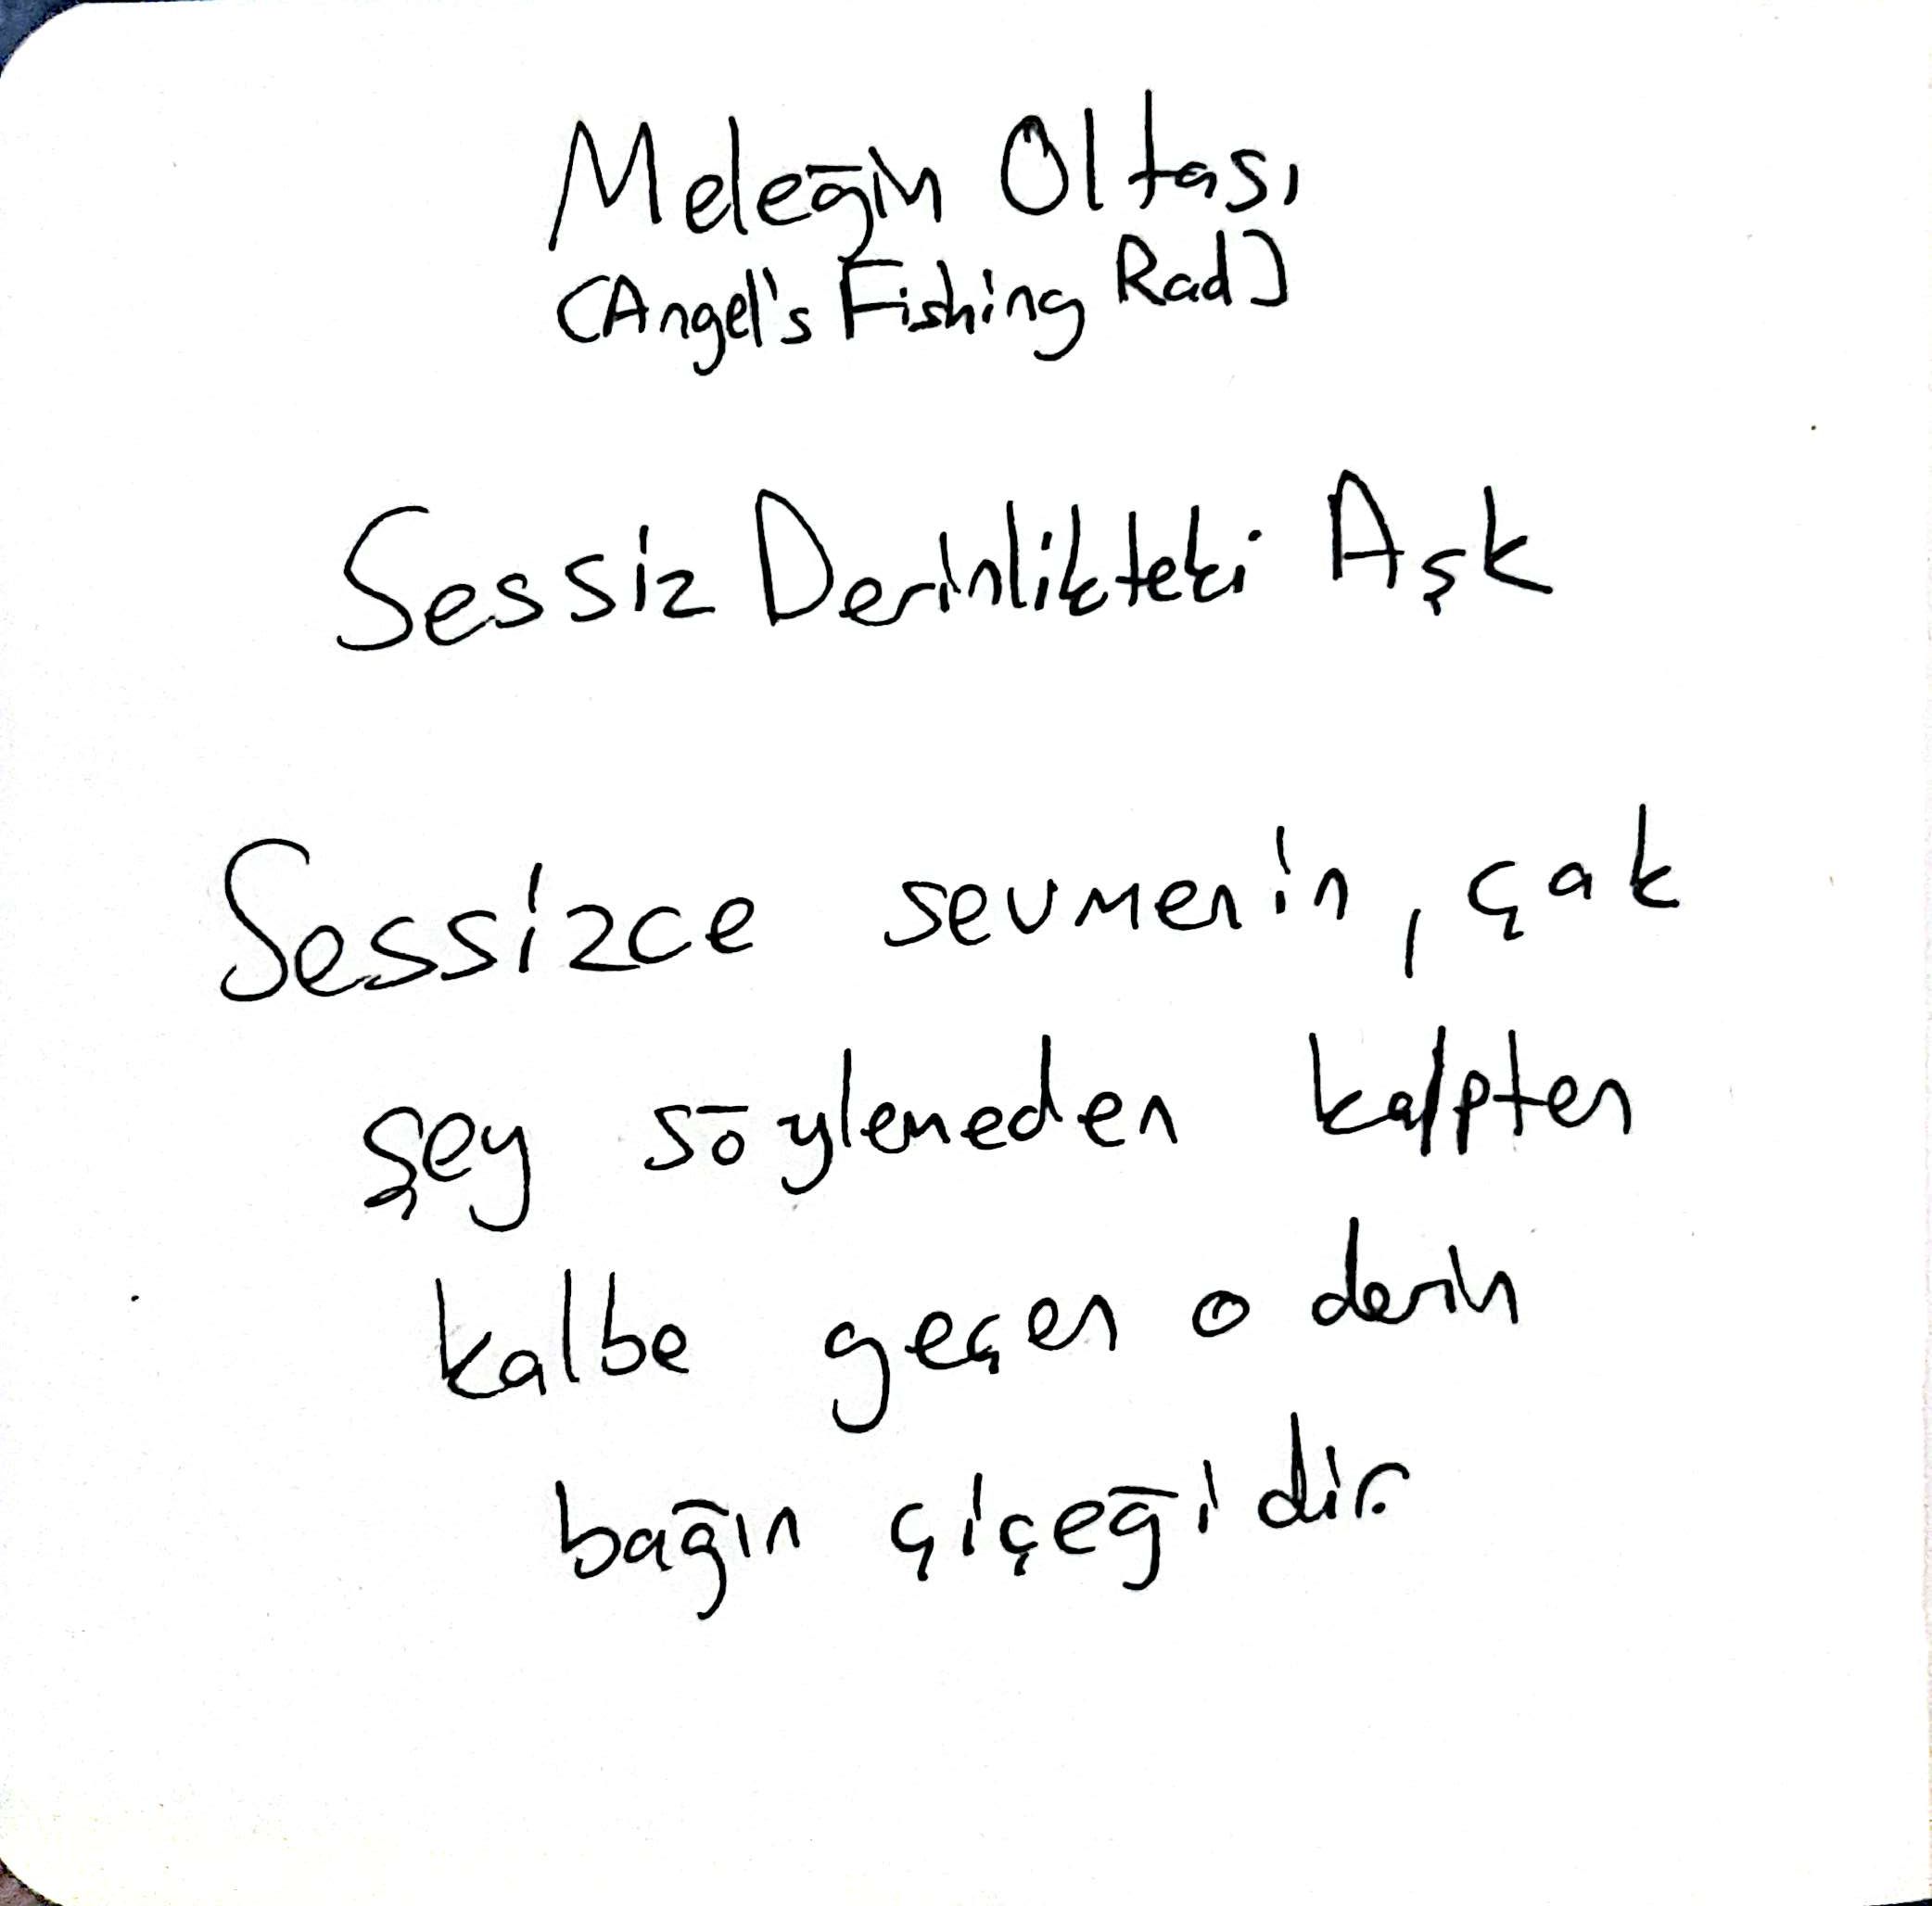 Meleğin Oltası
(Angel's Fishing Rad)
Sessiz Derinlikteki Aşk
Sessizce sevmenin, çak
şey söylemeden kalpten
kalbe geçen o derin
bağın çiçeğidir.